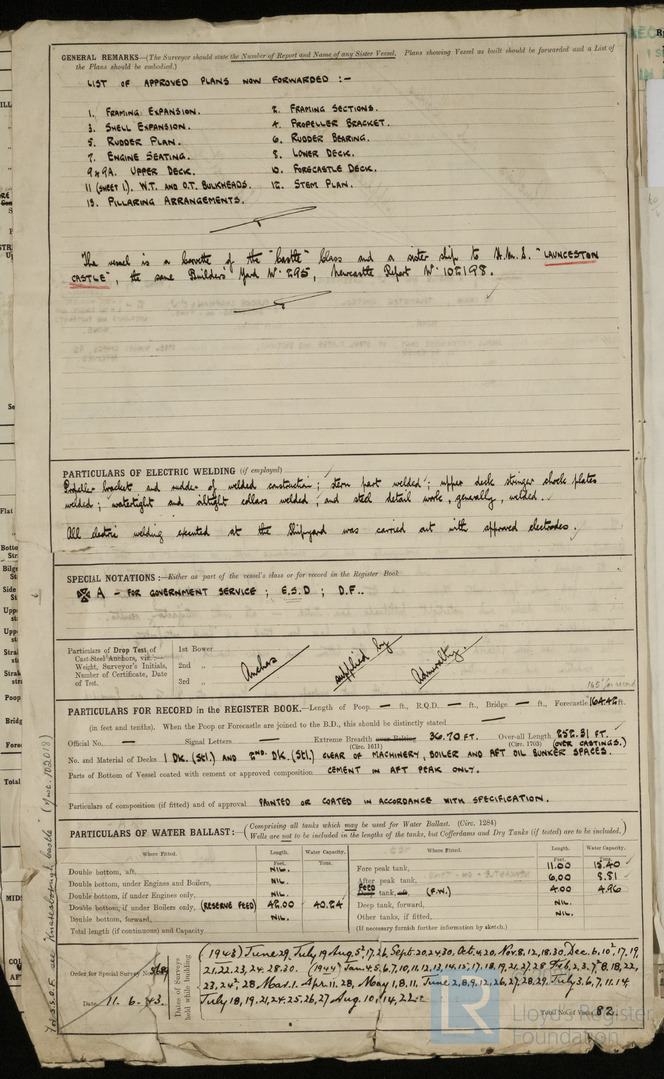 GENERAL REMARKS—(The Surveyor should state the Number of Report and Name of any Sister Vessel. Plans showing Vessel as built should be forwarded and a List of
the Plans should be embodied.)
LIST OF APPROVED PLANS NOW FORWARDED :-
1. FRAMING EXPANSION. 2. FRAMING SECTIONS.
3. SHELL EXPANSION. 4. PROPELLER BRACKET.
5. RUDDER PLAN. 6. RUDDER BEARING.
7. ENGINE SEATING. 8. LOWER DECK.
9 & 9A. UPPER DECK. 10. FORECASTLE DECK.
11 (SHEET 1). W.T. AND O.T. BULKHEADS. 12. STEM PLAN.
13. PILLARING ARRANGEMENTS.
The vessel is a corvette of the "Castle" Class and a sister ship to H.M.S. "LAUNCESTON
CASTLE", the same Builders' Yard No. 295, Newcastle Report No. 102198.
PARTICULARS OF ELECTRIC WELDING (if employed)
Propeller bracket and rudder of welded construction; stern part welded; upper deck stringer shock plates
welded; watertight and oiltight collars welded; and steel detail work, generally, welded.
All electric welding executed at the Shipyard was carried out with approved electrodes.
SPECIAL NOTATIONS :—Either as part of the vessel's class or for record in the Register Book
A - FOR GOVERNMENT SERVICE ; E.S.D ; D.F..
Particulars of Drop Test of
Cast Steel Anchors, viz.:—
Weight, Surveyor's Initials,
Number of Certificate, Date
of Test.
1st Bower
2nd „
3rd „
Anchors supplied by Admiralty.
165' for record
PARTICULARS FOR RECORD in the REGISTER BOOK.—Length of Poop — ft., R.Q.D. — ft., Bridge — ft., Forecastle 164.42 ft.
(in feet and tenths). When the Poop or Forecastle are joined to the B.D., this should be distinctly stated —
Official No. — Signal Letters — Extreme Breadth 36.70 FT. Over-all Length 252.31 FT.
(Circ. 1611) (Circ. 1703) (OVER CASTINGS.)
No. and Material of Decks 1 DK. (Stl.) AND 2ND. DK. (Stl.) CLEAR OF MACHINERY, BOILER AND AFT OIL BUNKER SPACES.
Parts of Bottom of Vessel coated with cement or approved composition CEMENT IN AFT PEAK ONLY.
Particulars of composition (if fitted) and of approval PAINTED OR COATED IN ACCORDANCE WITH SPECIFICATION.
PARTICULARS OF WATER BALLAST:—(Comprising all tanks which may be used for Water Ballast. (Circ. 1284)
Wells are not to be included in the lengths of the tanks, but Cofferdams and Dry Tanks (if tested) are to be included.)
Where Fitted. Length. Water Capacity. Where Fitted. Length. Water Capacity.
Feet. Tons. Feet. Tons.
Double bottom, aft, NIL. Fore peak tank, 11.00 15.40
Double bottom, under Engines and Boilers, NIL. After peak tank, 6.00 8.81
Double bottom, if under Engines only, NIL. FEED tank, (F.W.) 4.00 4.96
Double bottom, if under Boilers only, (RESERVE FEED) 42.00 40.24 Deep tank, forward, NIL.
Double bottom, forward, NIL. Other tanks, if fitted, NIL.
Total length (if continuous) and Capacity (If necessary furnish further information by sketch.)
Order for Special Survey No.
Date 11. 6. 43.
Dates of Surveys
held while building
(1943) June 29, July 19, Aug 5, 17, 26, Sept. 20, 24, 30, Oct. 4, 20, Nov. 8, 12, 18, 30, Dec. 6, 10, 17, 19,
21, 22, 23, 24, 28, 30. (1944) Jan. 4, 5, 6, 7, 10, 11, 12, 13, 14, 15, 17, 18, 19, 21, 27, 28 Feb. 2, 3, 7, 8, 18, 22,
23, 24, 28 Mar. 1. Apr. 11, 28, May 1, 8, 11, June 2, 8, 9, 12, 26, 27, 28, 29, July 3, 6, 7, 11, 14
July 18, 19, 21, 24, 25, 26, 27 Aug 10, 14, 22
Total No. of Visits 82.
LR Lloyd's Register
Foundation